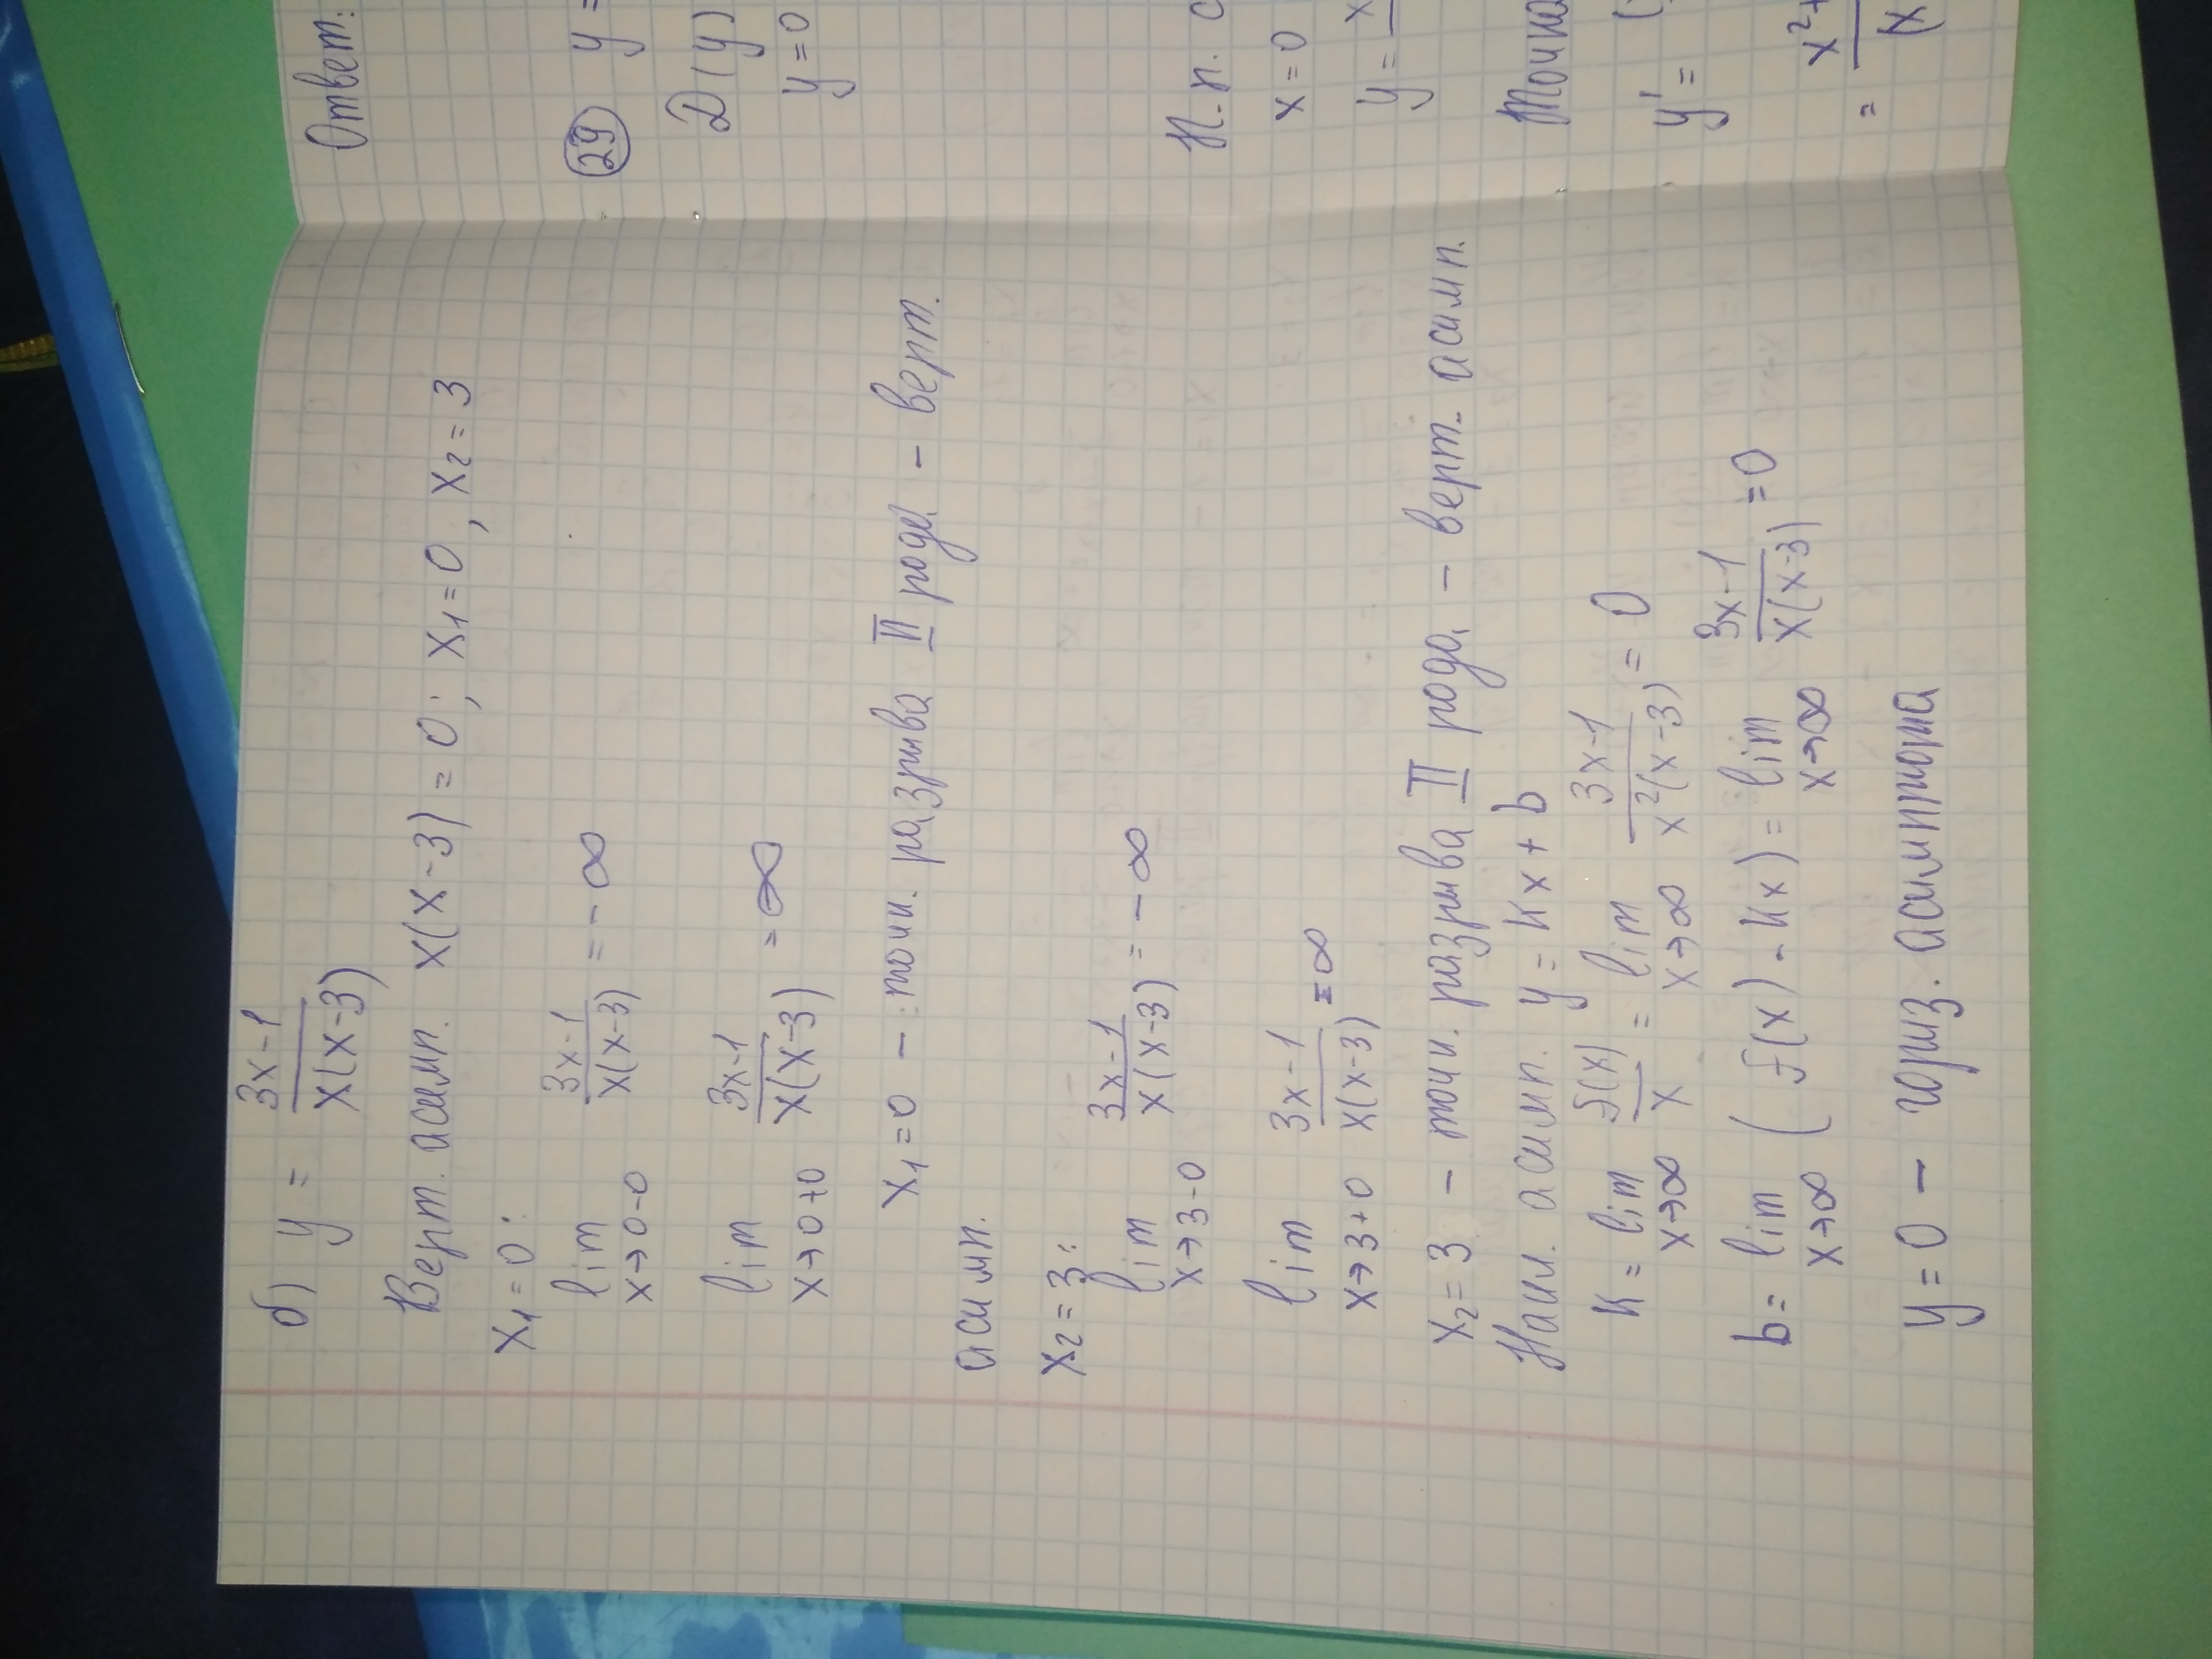 б) y = (3x-1)/(x(x-3))
Верт. асимп. x(x-3) = 0; x₁=0, x₂=3
x₁=0:
lim x→0-0 (3x-1)/(x(x-3)) = -∞
lim x→0+0 (3x-1)/(x(x-3)) = ∞
x₁=0 – точк. разрыва II рода – верт.
асимп.
x₂=3:
lim x→3-0 (3x-1)/(x(x-3)) = -∞
lim x→3+0 (3x-1)/(x(x-3)) = ∞
x₂=3 – точк. разрыва II рода – верт. асимп.
Накл. асимп. y = kx + b
k = lim x→∞ f(x)/x = lim x→∞ (3x-1)/(x²(x-3)) = 0
b = lim x→∞ (f(x) - kx) = lim x→∞ (3x-1)/(x(x-3)) = 0
y=0 – гориз. асимптота
Ответ:
29 y=
D(y)
y=0
Н.п. с
x=0
y = x
Точка
y' = (
= x²+
(x